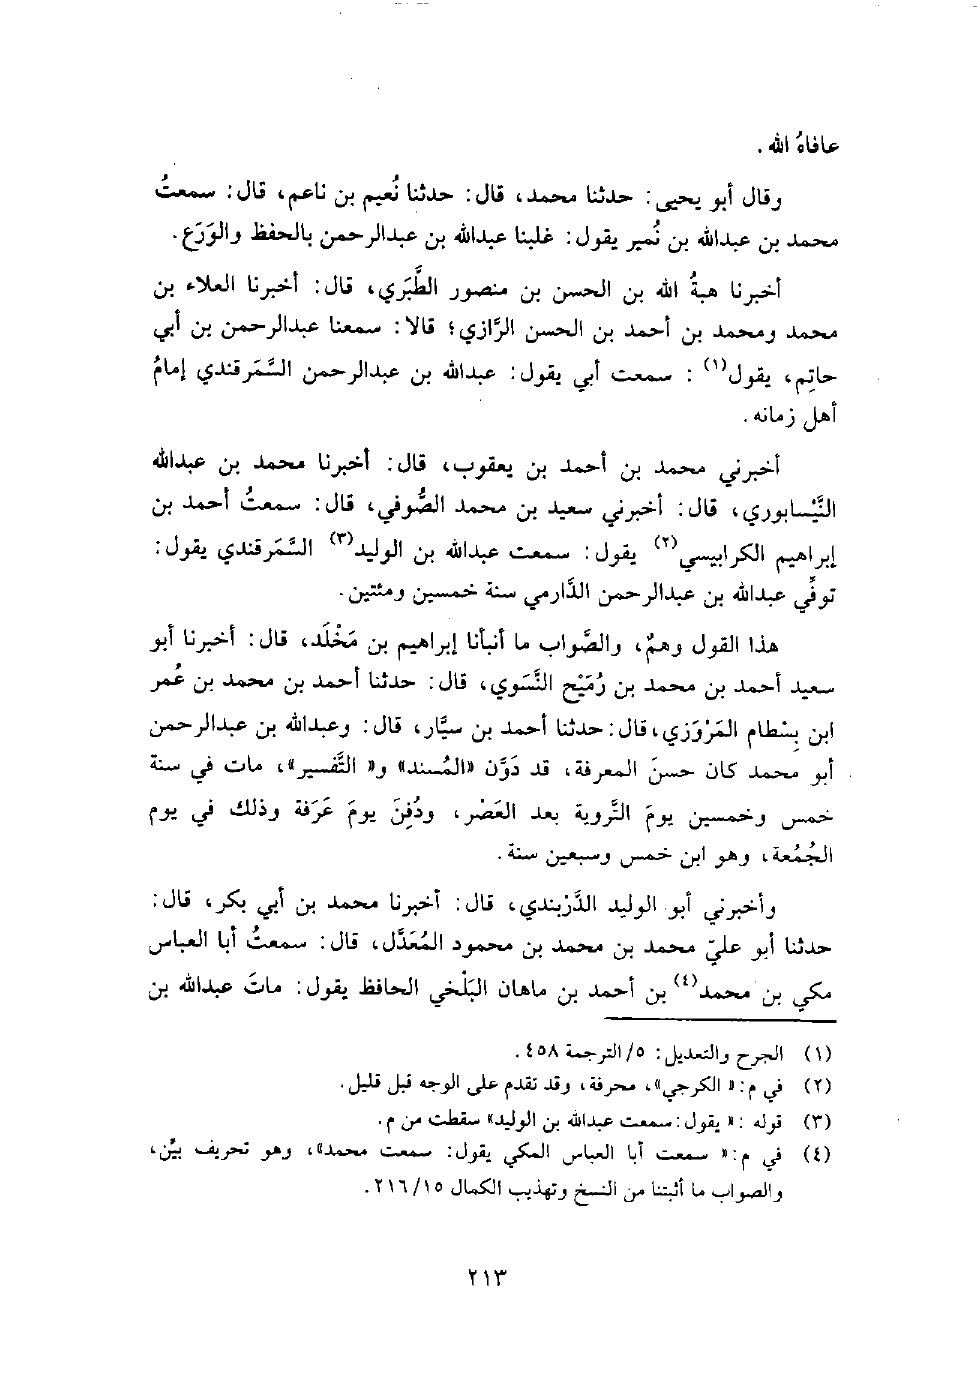 عافاهُ الله .
وقال أبو يحيى: حدثنا محمد، قال: حدثنا نُعيم بن ناعم، قال: سمعتُ
محمد بن عبدالله بن نُمير يقول: غلبنا عبدالله بن عبدالرحمن بالحفظ والوَرَع.
أخبرنا هبةُ الله بن الحسن بن منصور الطَّبَري، قال: أخبرنا العلاء بن
محمد ومحمد بن أحمد بن الحسن الرَّازي؛ قالا: سمعنا عبدالرحمن بن أبي
حاتِم، يقول(١) : سمعت أبي يقول: عبدالله بن عبدالرحمن السَّمَرقندي إمامُ
أهل زمانه.
أخبرني محمد بن أحمد بن يعقوب، قال: أخبرنا محمد بن عبدالله
النَّيْسابوري، قال: أخبرني سعيد بن محمد الصُّوفي، قال: سمعتُ أحمد بن
إبراهيم الكرابيسي(٢) يقول: سمعت عبدالله بن الوليد(٣) السَّمَرقندي يقول:
توفِّي عبدالله بن عبدالرحمن الدَّارمي سنة خمسين ومئتين.
هذا القول وهمٌ، والصَّواب ما أنبأنا إبراهيم بن مَخْلَد، قال: أخبرنا أبو
سعيد أحمد بن محمد بن رُمَيْح النَّسَوي، قال: حدثنا أحمد بن محمد بن عُمر
ابن بِسْطام المَرْوَزي، قال: حدثنا أحمد بن سيَّار، قال: وعبدالله بن عبدالرحمن
أبو محمد كان حسنَ المعرفة، قد دَوَّن «المُسند» و« التَّفسير»، مات في سنة
خمس وخمسين يومَ التَّروية بعد العَصْر، ودُفِنَ يومَ عَرَفة وذلك في يوم
الجُمُعة، وهو ابن خمس وسبعين سنة.
وأخبرني أبو الوليد الدَّرْبندي، قال: أخبرنا محمد بن أبي بكر، قال:
حدثنا أبو عليّ محمد بن محمد بن محمود المُعَدَّل، قال: سمعتُ أبا العباس
مكي بن محمد(٤) بن أحمد بن ماهان البَلْخي الحافظ يقول: ماتَ عبدالله بن
(١) الجرح والتعديل: ٥/ الترجمة ٤٥٨ .
(٢) في م: « الكرجي»، محرفة، وقد تقدم على الوجه قبل قليل.
(٣) قوله : « يقول: سمعت عبدالله بن الوليد» سقطت من م.
(٤) في م: « سمعت أبا العباس المكي يقول: سمعت محمد»، وهو تحريف بيِّن،
والصواب ما أثبتنا من النسخ وتهذيب الكمال ١٥/ ٢١٦.
٢١٣